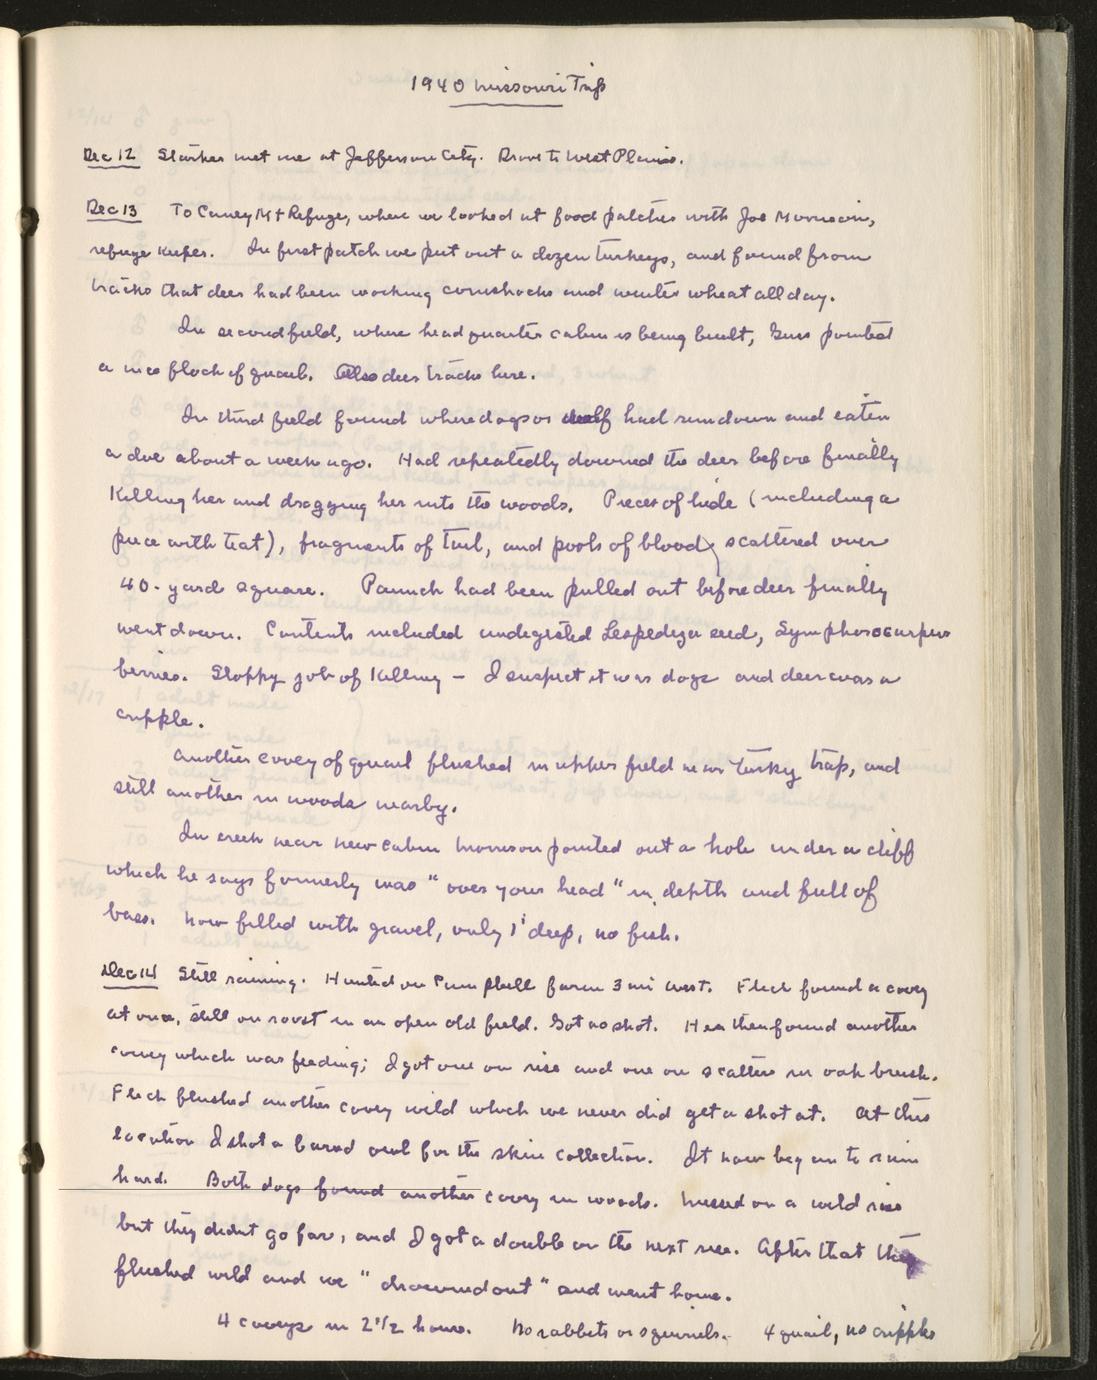 1940 Missouri Trip
Dec 12 Starker met me at Jefferson City. Drove to West Plains.
Dec 13 To Caney Mt Refuge, where we looked at food patches with Joe Morrison,
refuge keeper. In first patch we put out a dozen turkeys, and found from
tracks that deer had been working cornshocks and winter wheat all day.
In second field, where headquarter cabin is being built, Gus pointed
a nice flock of quail. Also deer tracks here.
In third field found where dogs or wolf had run down and eaten
a doe about a week ago. Had repeatedly downed the deer before finally
killing her and dragging her into the woods. Pieces of hide (including a
piece with teat), fragments of tail, and pools of blood scattered over
40-yard square. Paunch had been pulled out before deer finally
went down. Contents included undigested Lespedeza seed, Symphoricarpus
berries. Sloppy job of killing - I suspect it was dogs and deer was a
cripple.
Another covey of quail flushed in upper field near turkey trap, and
still another in woods nearby.
In creek near new cabin Morrison pointed out a hole under a cliff
which he says formerly was "over your head" in depth and full of
bass. Now filled with gravel, only 1' deep, no fish.
Dec 14 Still raining. Hunted on Campbell farm 3 mi west. Flick found a covey
at once, still on roost in an open old field. Got no shot. He then found another
covey which was feeding; I got one on rise and one on scatter in oak brush.
Flick flushed another covey wild which we never did get a shot at. At this
location I shot a barred owl for the skin collection. It now began to rain
hard. Both dogs found another covey in woods. Missed on a wild rise
but they didnt go far, and I got a double on the next rise. After that they
flushed wild and we "drowned out" and went home.
4 coveys in 2 1/2 hours. No rabbits or squirrels. 4 quail, no cripples